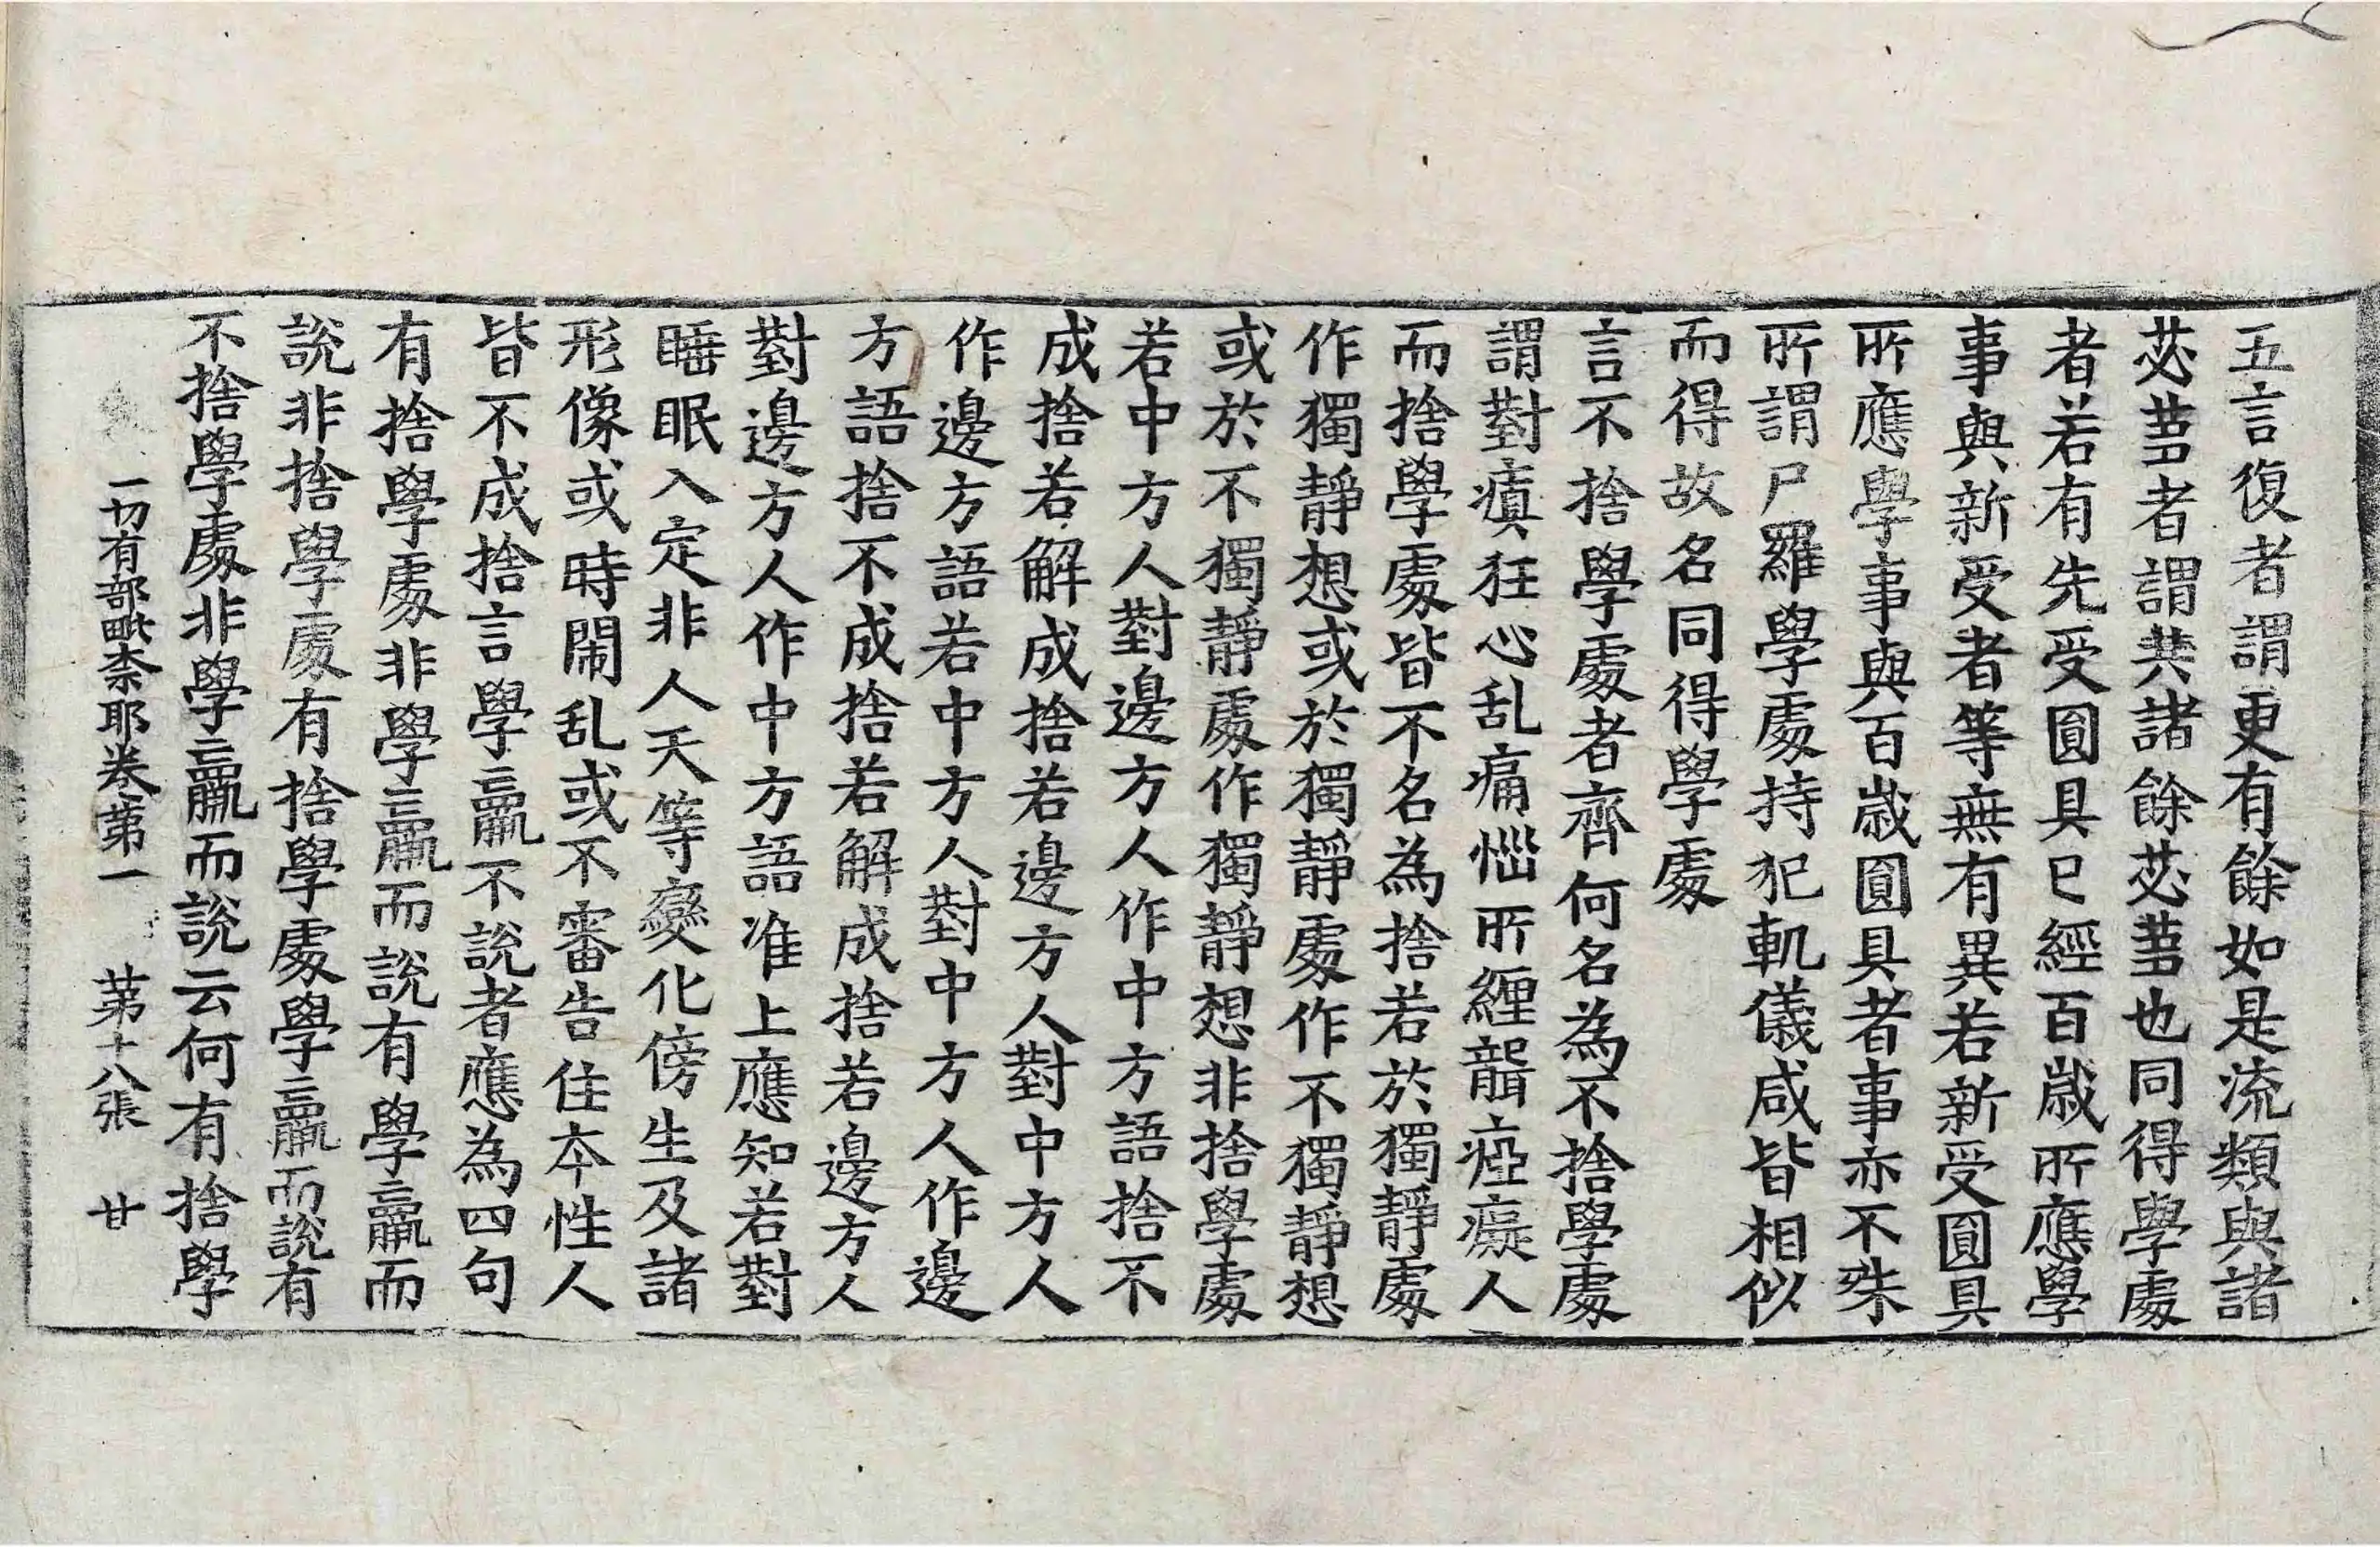 五言復者謂更有餘如是流類與諸
苾蒭者謂共諸餘苾蒭也同得學處
者若有先受圓具已經百歲所應學
事與新受者等無有異若新受圓具
所應學事與百歲圓具者事亦不殊
所謂尸羅學處持犯軌儀咸皆相似
而得故名同得學處
言不捨學處者齊何名為不捨學處
謂對瘨狂心乱痛惱所纏聾瘂癡人
而捨學處皆不名為捨若於獨靜處
作獨靜想或於獨靜處作不獨靜想
或於不獨靜處作獨靜想非捨學處
若中方人對邊方人作中方語捨不
成捨若解成捨若邊方人對中方人
作邊方語若中方人對中方人作邊
方語捨不成捨若解成捨若邊方人
對邊方人作中方語准上應知若對
睡眠入定非人天等變化傍生及諸
形像或時鬧乱或不審告住本性人
皆不成捨言學羸不說者應為四句
有捨學處非學羸而說有學羸而
說非捨學處有捨學處學羸而說有
不捨學處非學羸而說云何有捨學
一切有部毗奈耶卷第一 第十八張 甘